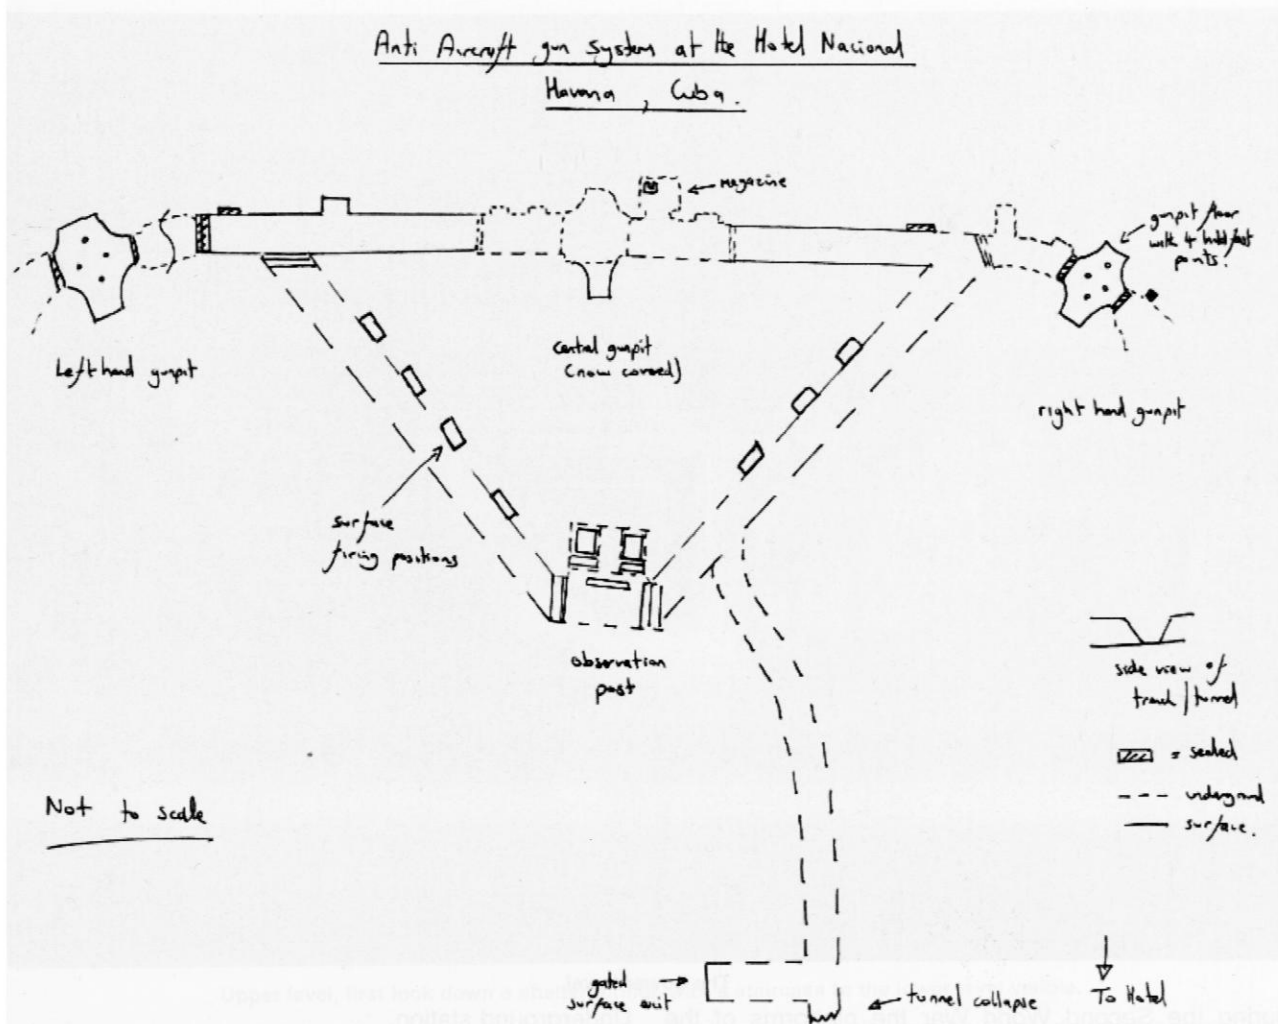 Anti Aircraft gun system at the Hotel Nacional
Havana, Cuba.
magazine
gunpit floor
with 4 holdfast
points.
Left hand gunpit
Central gunpit
(now covered)
right hand gunpit
surface
firing positions
observation
post
side view of
trench/tunnel
= sealed
underground
surface.
Not to scale
gated
surface exit
tunnel collapse
To Hotel